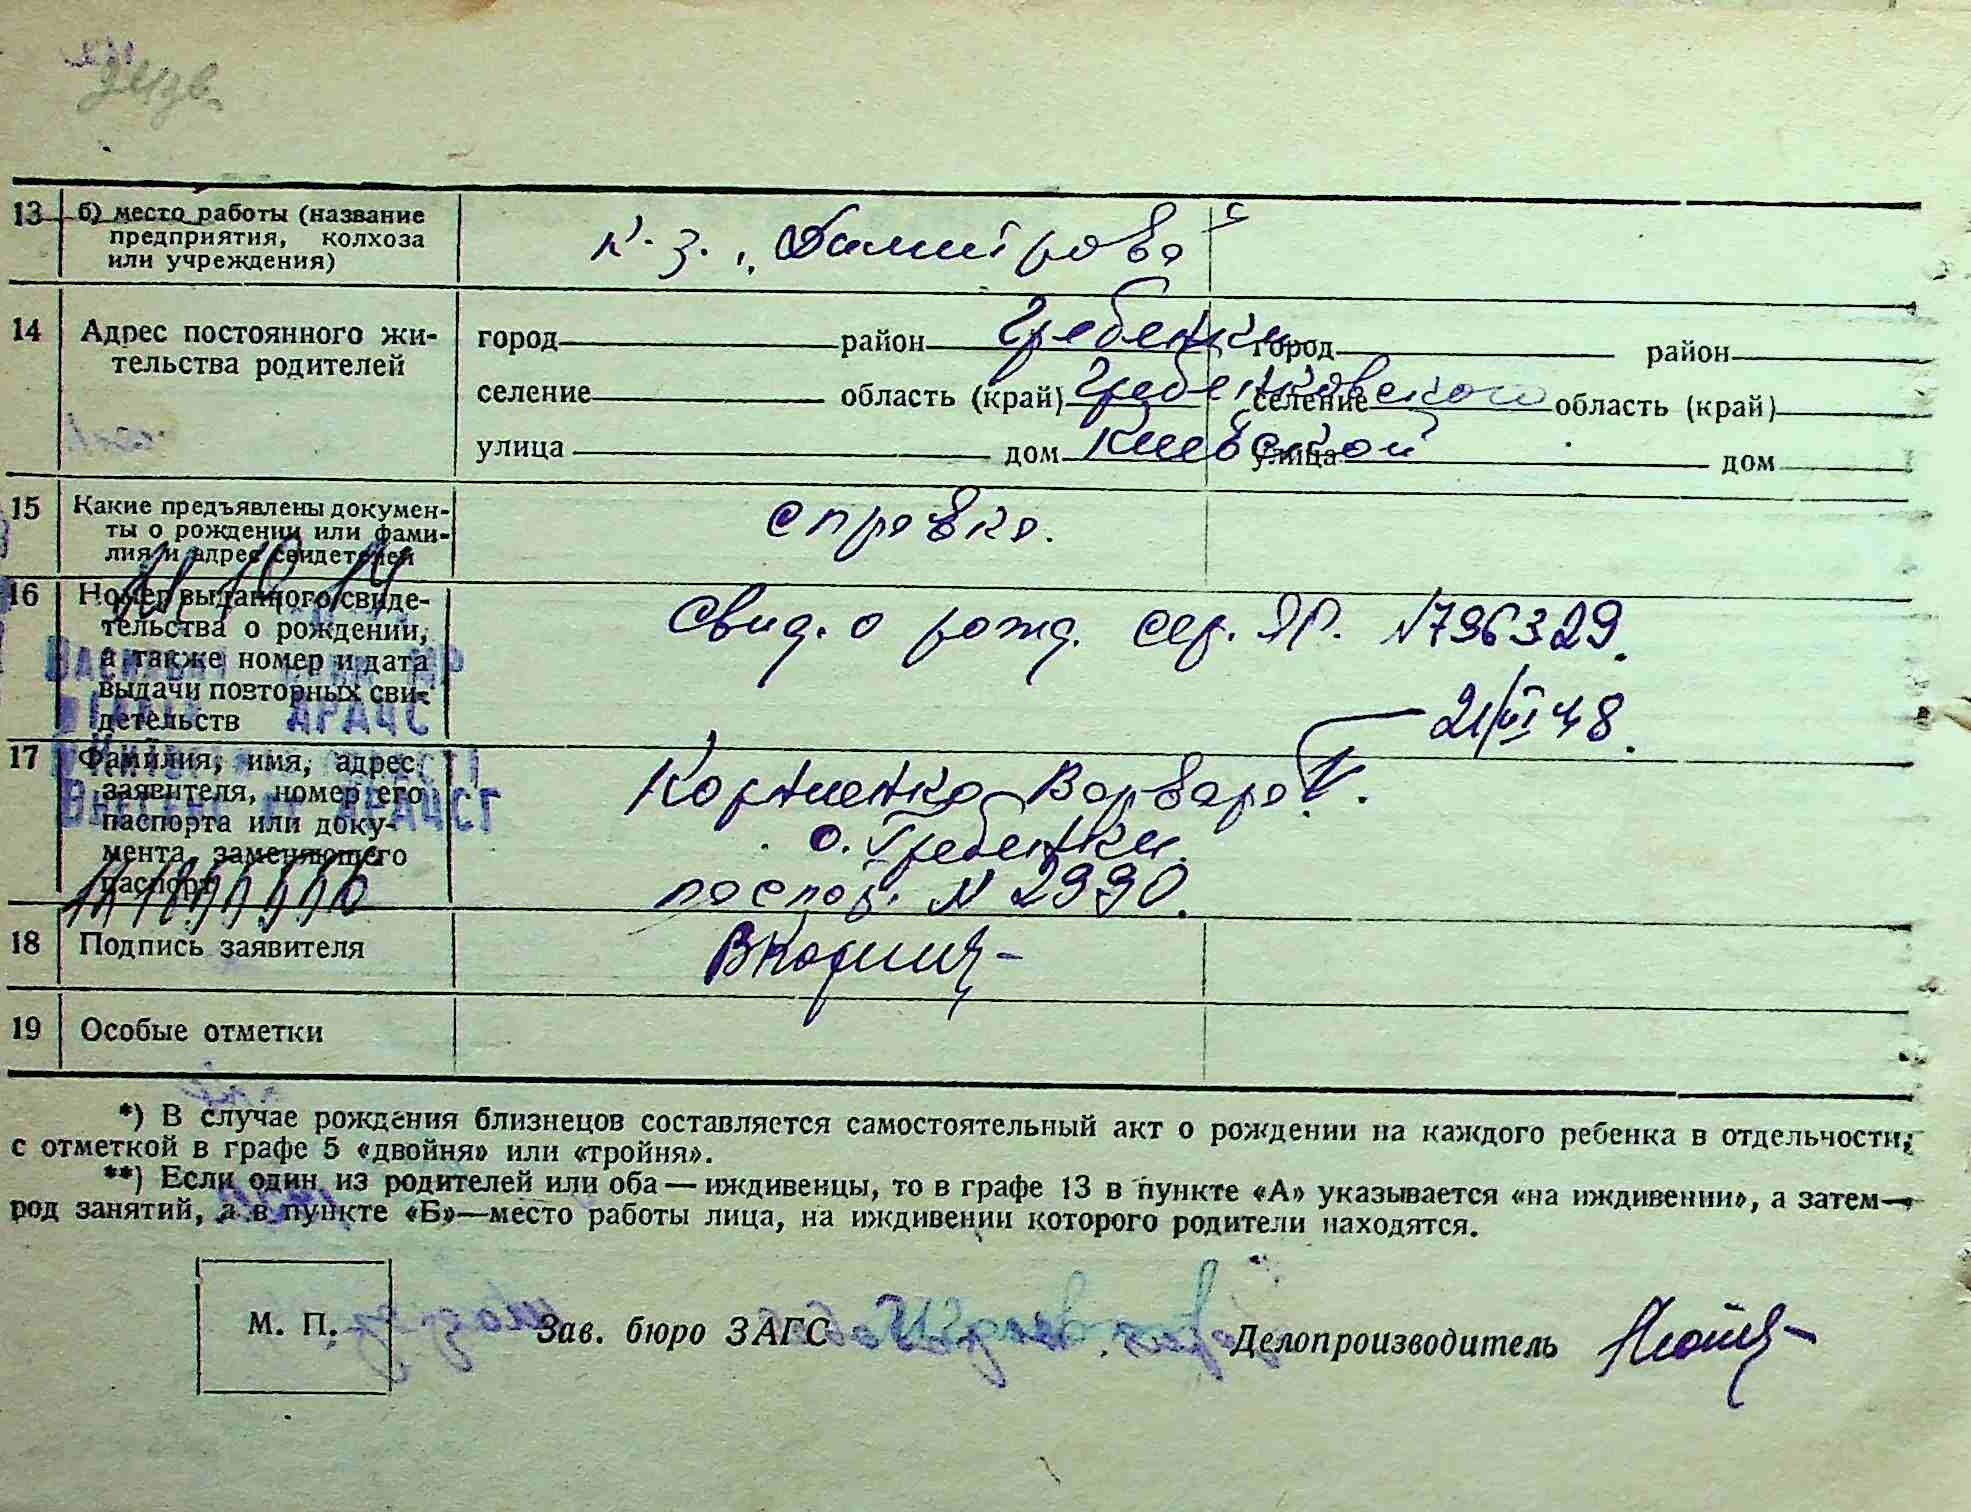 13 б) место работы (название
предприятия, колхоза
или учреждения)
к-з. „Димитрова
14 Адрес постоянного жи-
тельства родителей
город район Гребенки город район
селение область (край) Гребенковского селение область (край)
улица дом Киевской улица дом
15 Какие предъявлены докумен-
ты о рождении или фами-
лия и адрес свидетелей
справка.
16 Номер выданного свиде-
тельства о рождении,
а также номер и дата
выдачи повторных сви-
детельств
Свид. о рожд. сер. ЯР. №796329.
21/VI 48.
17 Фамилия, имя, адрес
заявителя, номер его
паспорта или доку-
мента, заменяющего
паспорт
Корниенко Варвара
с. Гребенки.
паспор. № 2990.
18 Подпись заявителя
19 Особые отметки
*) В случае рождения близнецов составляется самостоятельный акт о рождении на каждого ребенка в отдельности,
с отметкой в графе 5 «двойня» или «тройня».
**) Если один из родителей или оба — иждивенцы, то в графе 13 в пункте «А» указывается «на иждивении», а затем—
род занятий, а в пункте «Б»—место работы лица, на иждивении которого родители находятся.
М. П. Зав. бюро ЗАГС Делопроизводитель